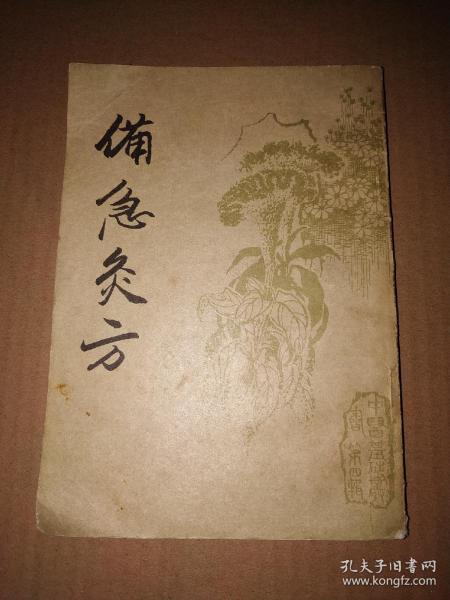 備急灸方
中醫基礎叢
書 第四輯
孔夫子旧书网
www.kongfz.com